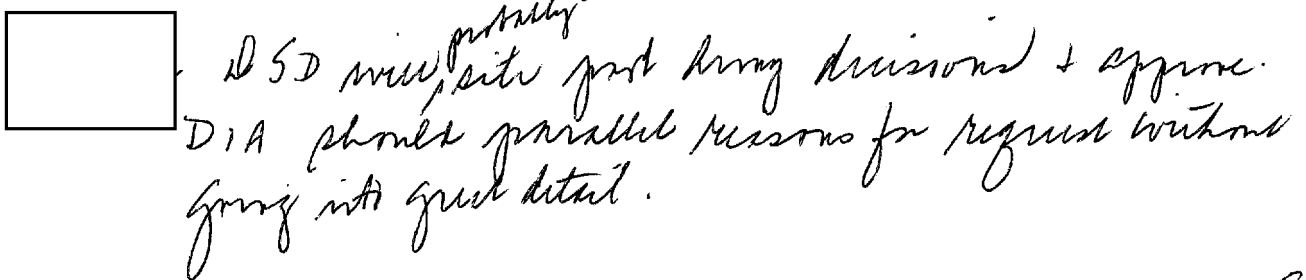 probably
DSD will, site past Army decisions + approve.
DIA should parallel reasons for request without
going into great detail.